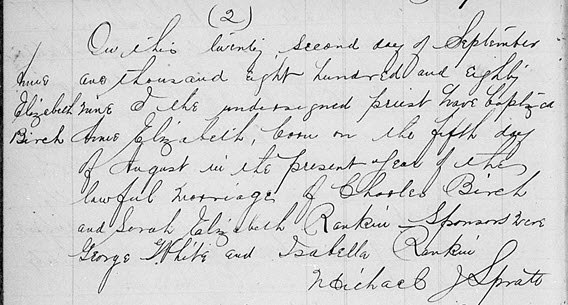 (2)
On this twenty second day of September
one thousand eight hundred and eighty
Annie Elizabeth Birch
nine I the undersigned priest have baptized
Annie Elizabeth, born on the fifth day
of August in the present year of the
lawful marriage of Charles Birch
and Sarah Elizabeth Rankin Sponsors were
George White and Isabella Rankin
Michael J Spratt